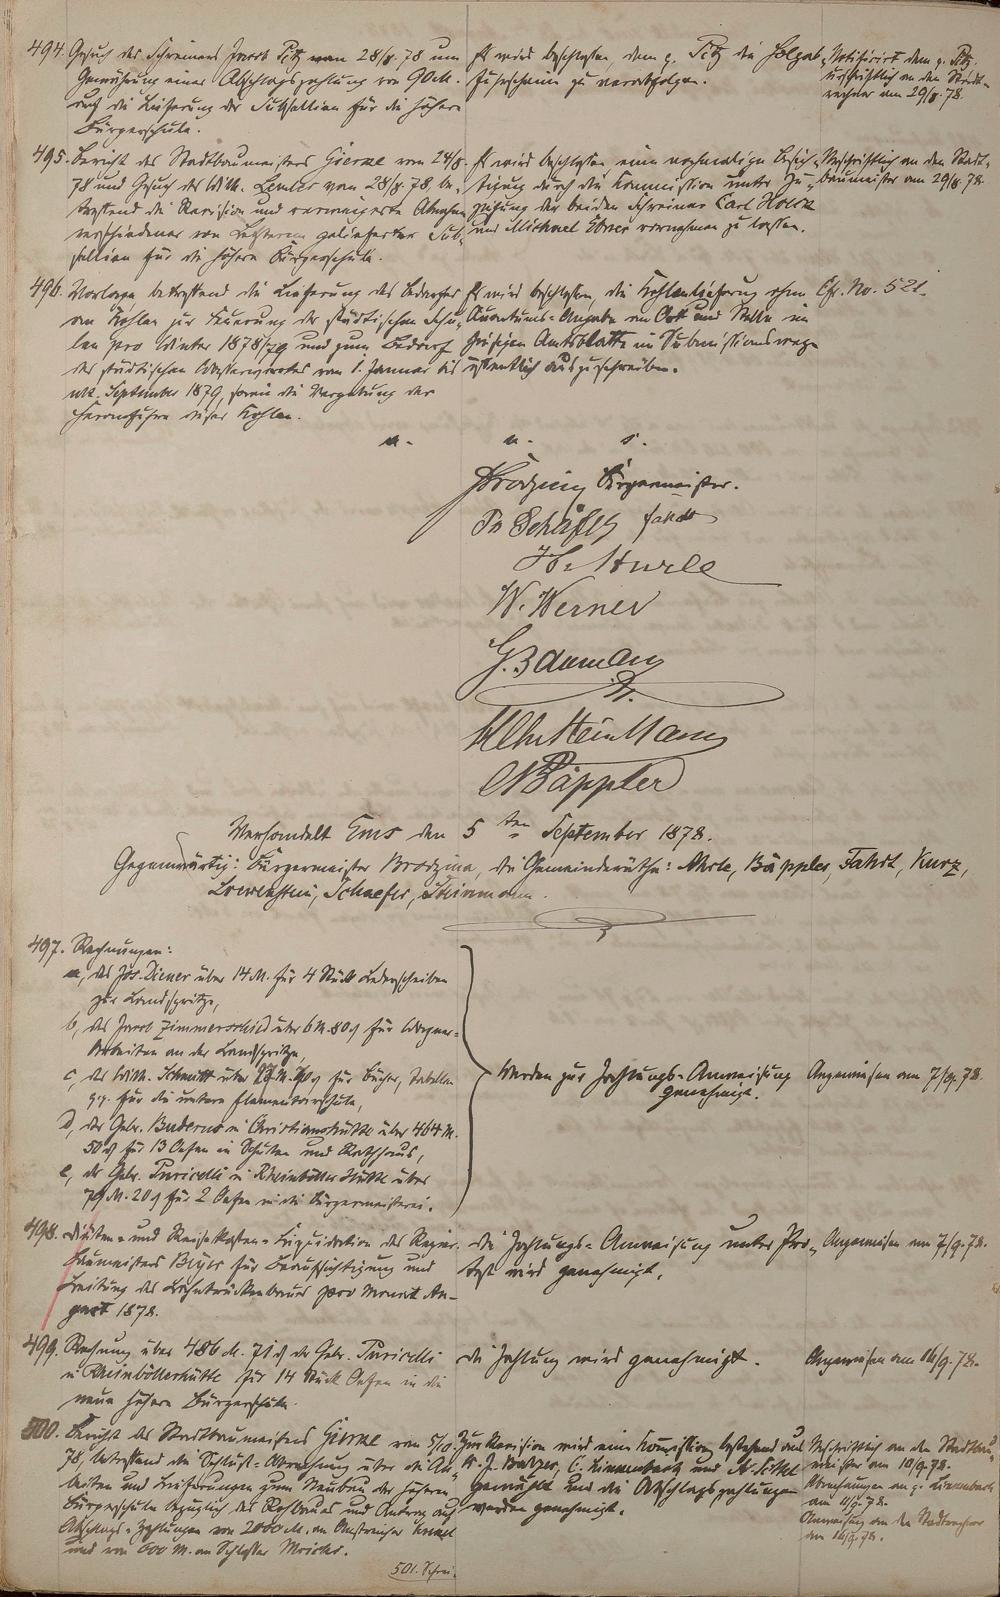 494. Gesuch des Schreiners Jacob Pitz vom 28/8.78 um
Genehmigung einer Abschlagszahlung von 90 M.
auf die Lieferung der Subsellien für die höhere
Bürgerschule.
Es wird beschlossen, dem p. Pitz die
zu verabfolgen.
Notificirt dem p. Pitz
urschriftlich an den Stadt-
rechner am 29/8.78.
495. Bericht des Stadtbaumeisters Gierke vom 24/8.
78 und Gesuch des Wilh. Lemler vom 28/8.78, be-
treffend die Revision und verweigerte Abnahme
verschiedener von Letzterem gelieferter Sub-
sellien für die höhere Bürgerschule.
Es wird beschlossen eine nochmalige Besich-
tigung durch die Kommission unter Zu-
ziehung der beiden Schreiner Carl
und Michael vornehmen zu lassen.
Urschriftlich an den Stadt-
baumeister am 29/8.78.
496. Vorlage betreffend die Lieferung des Bedarfes
an Kohlen zur Feuerung der städtischen Schu-
len pro Winter 1878/79 und zum Bedarf
des städtischen Wasserwerkes vom 1. Januar bis
ult. September 1879, sowie die Vergebung der
Heranfuhr dieser Kohlen.
Es wird beschlossen, die Kohlenlieferung ohne
Quantums-Angabe an Ort und Stelle im
hiesigen Amtsblatte im Submissionswege
öffentlich auszuschreiben.
Cfr. No. 521.
a. u. s.
Bürgermeister.
Schäfer Fahdt
W. Werner
G. Baumann
Steinmann
Bäppler
Verhandelt Ems den 5ten September 1878.
Gegenwärtig: Bürgermeister Brodzina, die Gemeinderäthe: Bäppler, Fahdt, Kurz,
Loewenstein, Schaefer, Steinmann.
497. Rechnungen:
a, des Jos. Diener über 14 M. für 4 Stück Lederscheiben
zur Landspritze,
b, des Jacob Zimmerschied über 6 M. 80 ₰ für Wagner-
Arbeiten an der Landspritze,
c, des Wilh. Schmitt über für Bücher, Tabellen
pp. für die untere Elementarschule,
d, der Gebr. Buderus in Christianshütte über 464 M.
50 ₰ für 13 Oefen in Schulen und Rathhaus,
e, der Gebr. Puricelli in Rheinböller Hütte über
79 M. 20 ₰ für 2 Oefen in die Bürgermeisterei.
Werden zur Zahlungs-Anweisung
genehmigt.
Angewiesen am 7/9.78.
498. Diäten- und Reisekosten-Liquidation des Regier.
Baumeisters Beyer für Beaufsichtigung und
Leitung des Lahnbrückenbaues pro Monat Au-
gust 1878.
Die Zahlungs-Anweisung unter Pro-
test wird genehmigt.
Angewiesen am 7/9.78.
499. Rechnung über 486 M. 71 ₰ der Gebr. Puricelli
in Rheinböllerhütte für 14 Stück Oefen in die
neue höhere Bürgerschule.
Die Zahlung wird genehmigt.
Angewiesen am 16/9.78.
500. Bericht des Stadtbaumeisters Gierke vom
78, betreffend die Schluß-Abrechnung über die Ar-
beiten und Lieferungen zum Neubau der höheren
Bürgerschule bezüglich des Rohbaues und Antrag auf
Abschlags-Zahlungen von 2000 M. an
und von 600 M. an Schlosser
Zur Revision wird eine Kommission bestehend aus
Balzer, C. Linnenbach und
gewählt und die Abschlagszahlungen
werden genehmigt.
Urschriftlich an den Stadtbau-
meister am 10/9.78.
an p. Linnenbach
am 11/9.78.
Anweisung an den Stadtrechner
am 16/9.78.
501. Schrei-